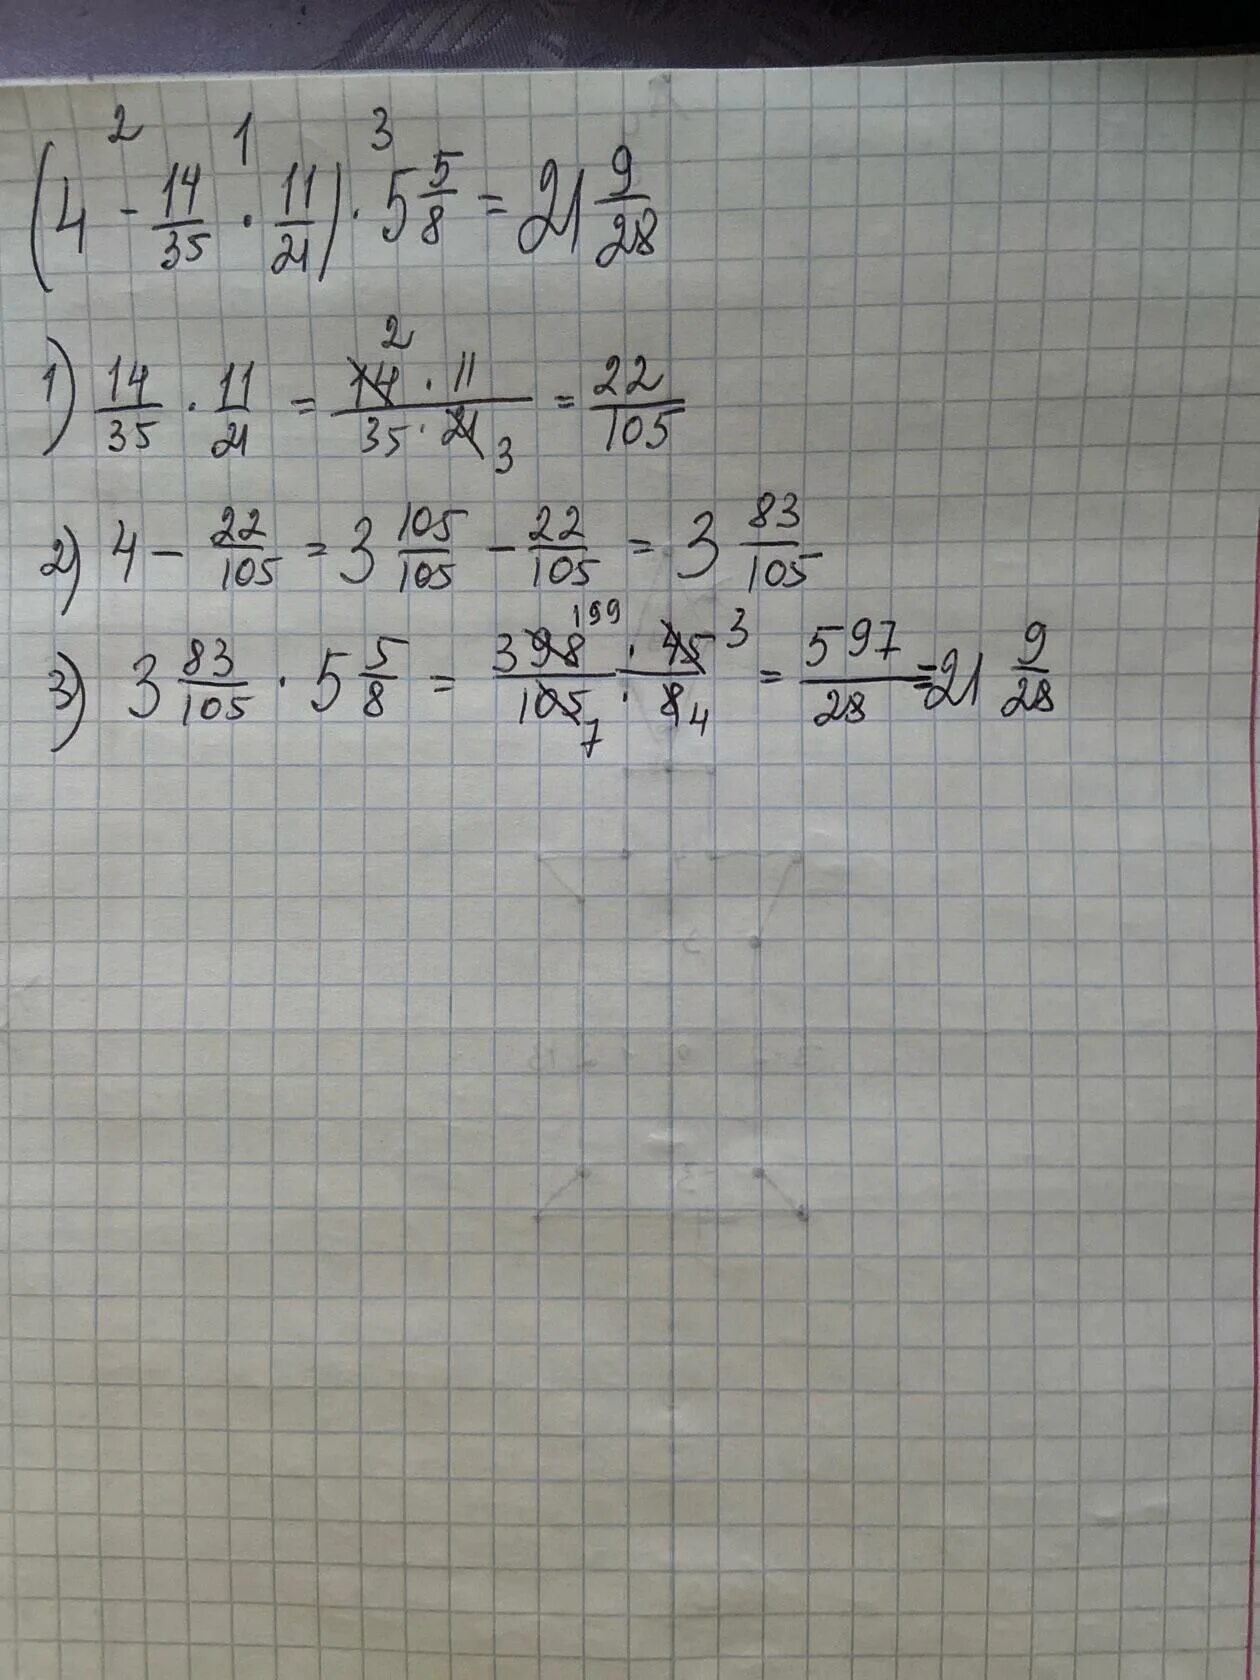 (4 - 14/35 · 11/21) · 5 5/8 = 21 9/28
2 1 3
1) 14/35 · 11/21 = 14 2 · 11 / 35 · 21 3 = 22/105
2) 4 - 22/105 = 3 105/105 - 22/105 = 3 83/105
3) 3 83/105 · 5 5/8 = 398 199 · 45 3 / 105 7 · 8 4 = 597/28 = 21 9/28